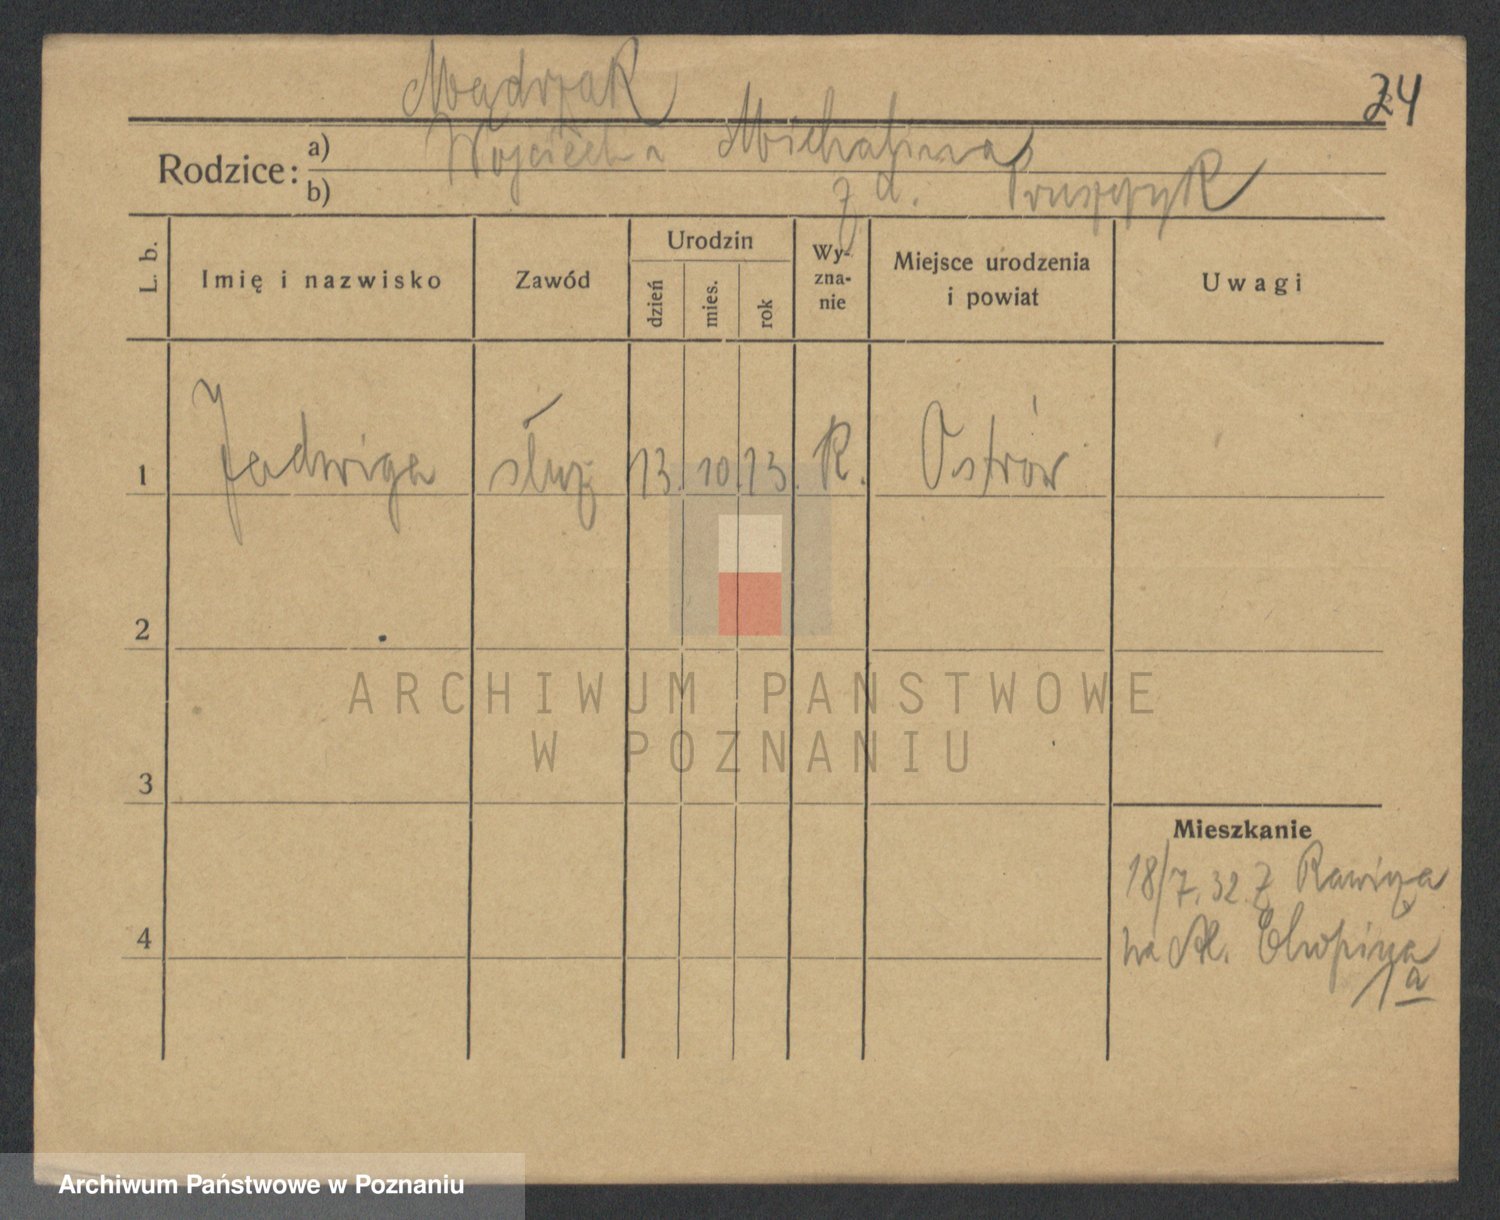 Mądrzak
24
Rodzice: a) Wojciech Michalina
b) z d. Pruszczyk
L. b. Imię i nazwisko Zawód Urodzin dzień mies. rok Wy-zna-nie Miejsce urodzenia i powiat Uwagi
1 Jadwiga służ 13. 10. 13. R. Ostrów
2
3
4
Mieszkanie
18/7.32. Z Rawicza
na Al. Chopina
1a
ARCHIWUM PAŃSTWOWE
W POZNANIU
Archiwum Państwowe w Poznaniu